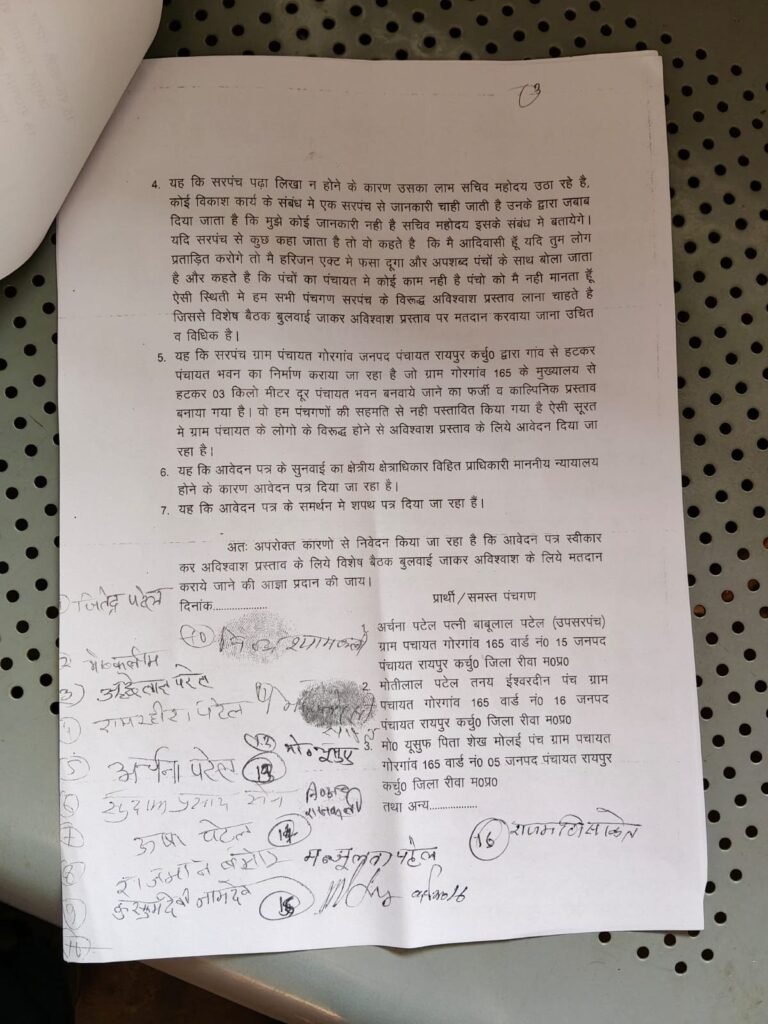 3
4. यह कि सरपंच पढ़ा लिखा न होने के कारण उसका लाभ सचिव महोदय उठा रहे है,
कोई विकाश कार्य के संबंध मे एक सरपंच से जानकारी चाही जाती है उनके द्वारा जबाब
दिया जाता है कि मुझे कोई जानकारी नही है सचिव महोदय इसके संबंध मे बतायेगे।
यदि सरपंच से कुछ कहा जाता है तो वो कहते है कि मै आदिवासी हूँ यदि तुम लोग
प्रताड़ित करोगे तो मै हरिजन एक्ट मे फसा दूगा और अपशब्द पंचों के साथ बोला जाता
है और कहते है कि पंचों का पंचायत मे कोई काम नही है पंचो को मै नही मानता हूँ
ऐसी स्थिती मे हम सभी पंचगण सरपंच के विरूद्ध अविश्वाश प्रस्ताव लाना चाहते है
जिससे विशेष बैठक बुलवाई जाकर अविश्वाश प्रस्ताव पर मतदान करवाया जाना उचित
व विधिक है।
5. यह कि सरपंच ग्राम पंचायत गोरगांव जनपद पंचायत रायपुर कर्चु0 द्वारा गांव से हटकर
पंचायत भवन का निर्माण कराया जा रहा है जो ग्राम गोरगांव 165 के मुख्यालय से
हटकर 03 किलो मीटर दूर पंचायत भवन बनवाये जाने का फर्जी व काल्पिनिक प्रस्ताव
बनाया गया है। वो हम पंचगणों की सहमति से नही पस्तावित किया गया है ऐसी सूरत
मे ग्राम पंचायत के लोगो के विरूद्ध होने से अविश्वाश प्रस्ताव के लिये आवेदन दिया जा
रहा है।
6. यह कि आवेदन पत्र के सुनवाई का क्षेत्रीय क्षेत्राधिकार विहित प्राधिकारी माननीय न्यायालय
होने के कारण आवेदन पत्र दिया जा रहा है।
7. यह कि आवेदन पत्र के समर्थन मे शपथ पत्र दिया जा रहा हैं।
अतः अपरोक्त कारणो से निवेदन किया जा रहा है कि आवेदन पत्र स्वीकार
कर अविश्वाश प्रस्ताव के लिये विशेष बैठक बुलवाई जाकर अविश्वाश के लिये मतदान
कराये जाने की आज्ञा प्रदान की जाय।
दिनांक..................
प्रार्थी/समस्त पंचगण
1. अर्चना पटेल पत्नी बाबूलाल पटेल (उपसरपंच)
ग्राम पचायत गोरगांव 165 वार्ड नं0 15 जनपद
पंचायत रायपुर कर्चु0 जिला रीवा म0प्र0
2. मोतीलाल पटेल तनय ईश्वरदीन पंच ग्राम
पंचायत गोरगांव 165 वार्ड नं0 16 जनपद
पंचायत रायपुर कर्चु0 जिला रीवा म0प्र0
3. मो0 यूसुफ पिता शेख मोलई पंच ग्राम पचायत
गोरगांव 165 वार्ड नं0 05 जनपद पंचायत रायपुर
कर्चु0 जिला रीवा म0प्र0
तथा अन्य................
1) जितेन्द्र पटेल
10 श्यामकली
2
3)
4 पटेल
5 अर्चना पटेल
13
6
7 ऊषा पटेल
14
8 मन्जूलता पटेल
9 नामदेव
15
16